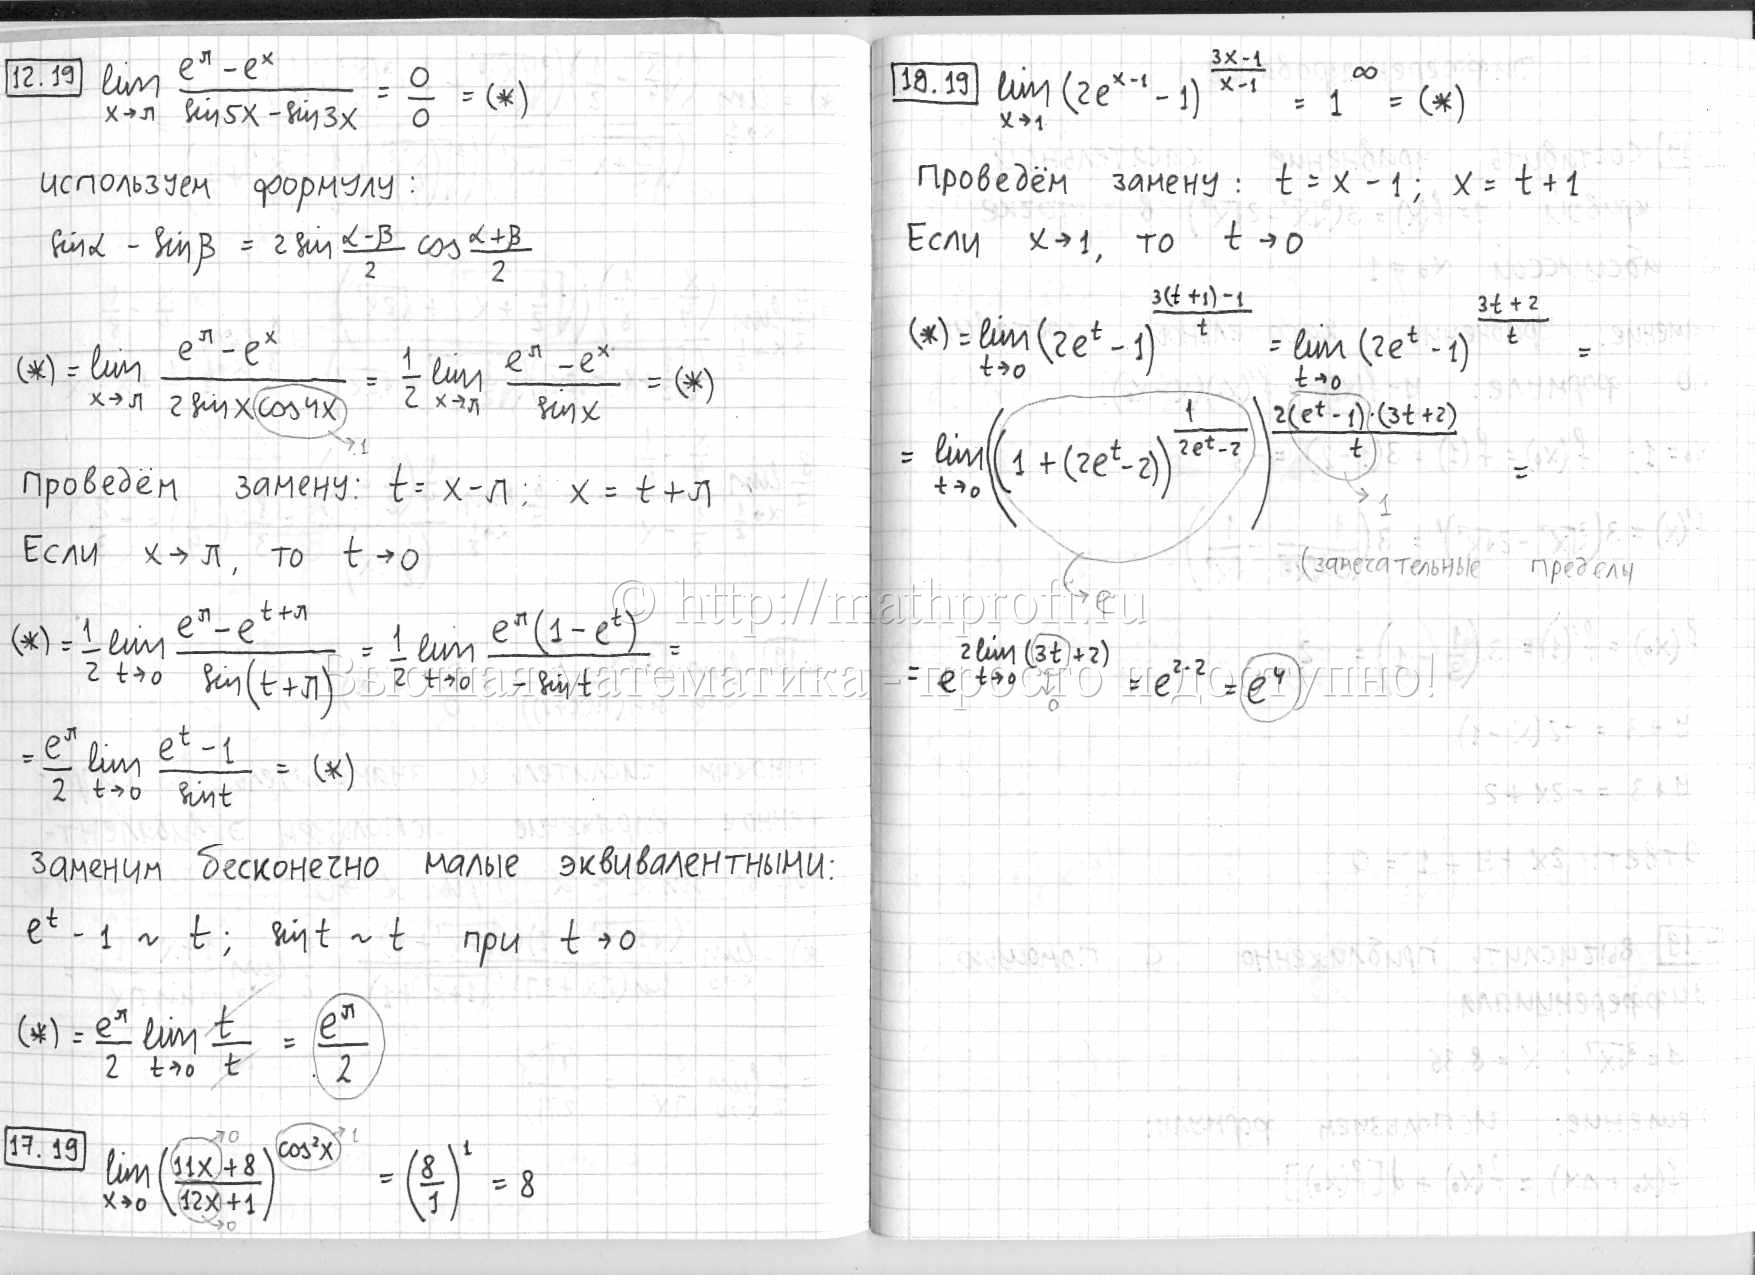 12.19 lim x→π (e^π − e^x)/(sin5x − sin3x) = 0/0 = (*)
используем формулу:
sinα − sinβ = 2 sin (α−β)/2 cos (α+β)/2
(*) = lim x→π (e^π − e^x)/(2 sinx cos4x) = 1/2 lim x→π (e^π − e^x)/(sinx) = (*)
→1
Проведём замену: t = x−π; x = t+π
Если x→π, то t→0
(*) = 1/2 lim t→0 (e^π − e^(t+π))/(sin(t+π)) = 1/2 lim t→0 (e^π(1−e^t))/(−sint) =
= e^π/2 lim t→0 (e^t − 1)/(sint) = (*)
Заменим бесконечно малые эквивалентными:
e^t − 1 ~ t; sint ~ t при t→0
(*) = e^π/2 lim t→0 t/t = e^π/2
17.19 lim x→0 ((11x+8)/(12x+1))^(cos²x) = (8/1)^1 = 8
→0 →1
→0
18.19 lim x→1 (2e^(x−1) − 1)^((3x−1)/(x−1)) = 1^∞ = (*)
Проведём замену: t = x−1; x = t+1
Если x→1, то t→0
(*) = lim t→0 (2e^t − 1)^((3(t+1)−1)/t) = lim t→0 (2e^t − 1)^((3t+2)/t) =
= lim t→0 ((1+(2e^t−2))^(1/(2e^t−2)))^((2(e^t−1)·(3t+2))/t) =
→1
(замечательные пределы
→e
= e^(2 lim t→0 (3t+2)) = e^(2·2) = e^4
0
© http://mathprofi.ru
Высшая математика - просто и доступно!